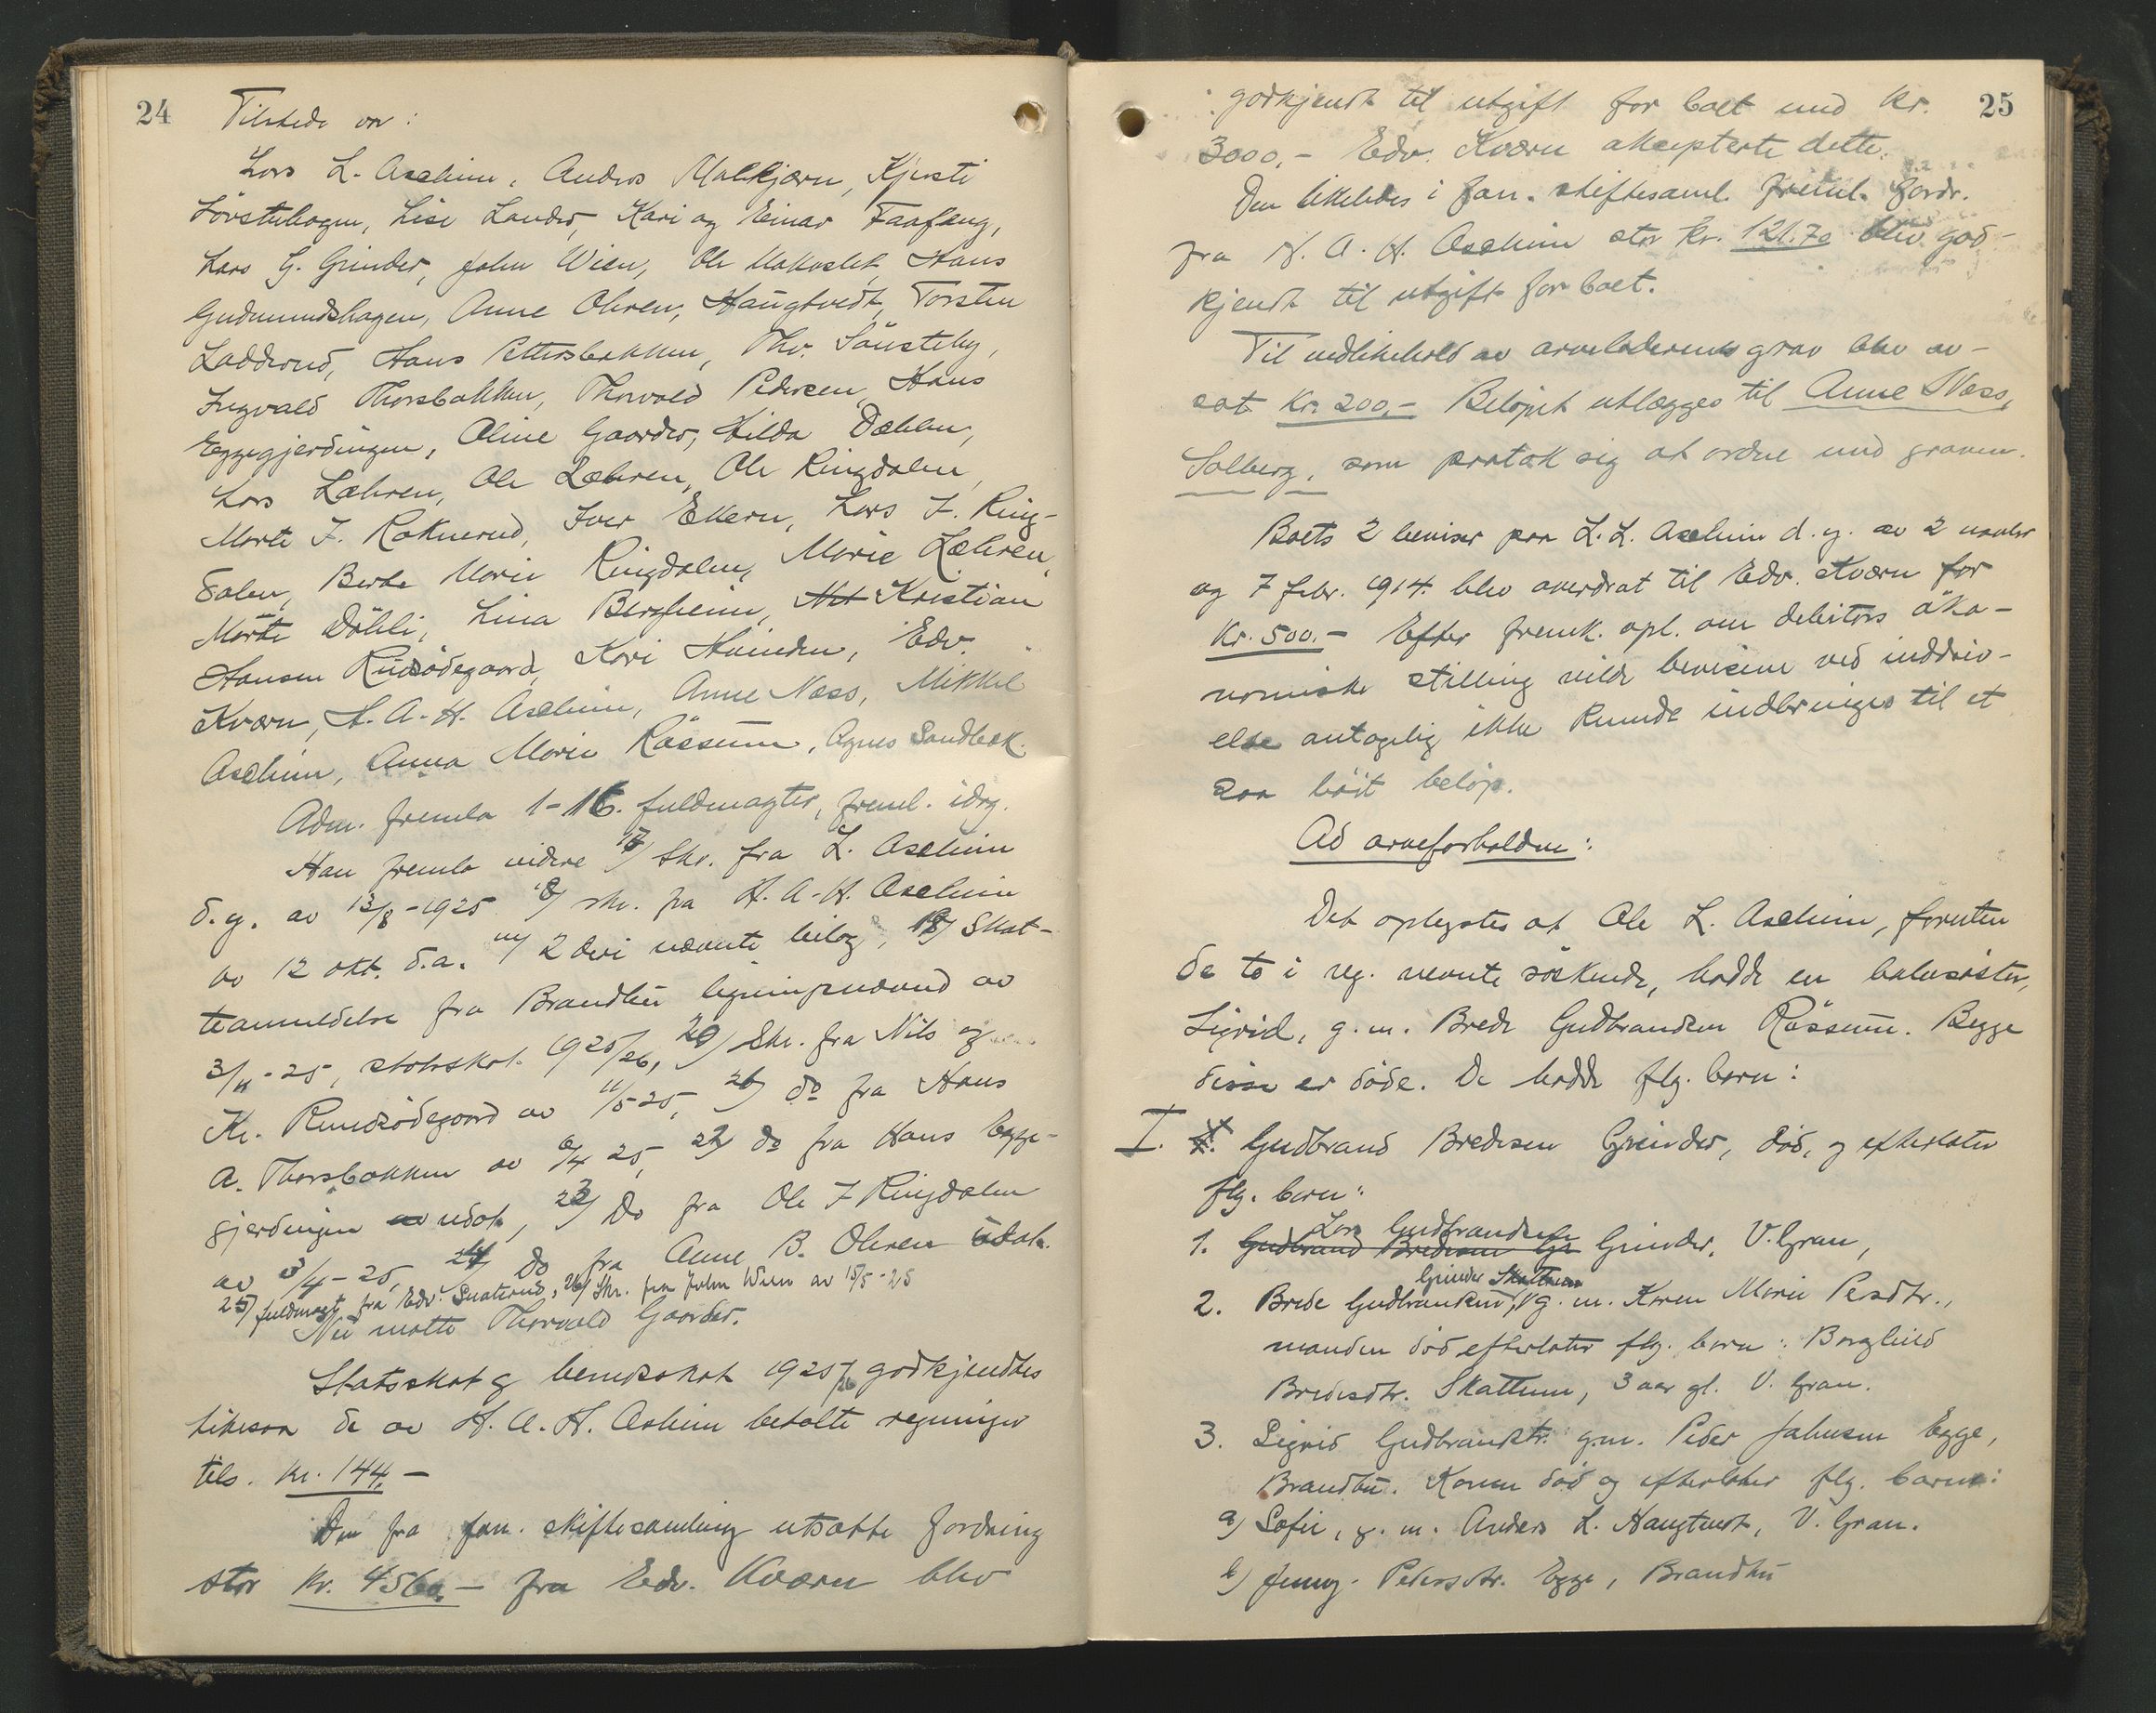 24
Tilstede var:
Lars L. Aschim, Anders Molkjærn, Kjersti
Sørstehagen, Lise Lander, Kari og Einar Faafeng,
Lars G. Grinder, John Wien, Ole Hans
Gudmundshagen, Anne Ohren, Haugtvedt, Torsten
Ladderud, Hans Pettersbakken, Thv. Sønsteby,
Ingvald Thorsbakken, Thorvald Pedersen, Hans
Eggegjerdingen, Oline Gaarder, Hilda Dæhlen,
Lars Læhren, Ole Læhren, Ole Ringdalen,
Marte I. Raknerud, Iver Ekern, Lars I. Ring-
dalen, Berte Marie Ringdalen, Marie Læhren,
Marte Døhli, Lina Bergheim, Kristian
Hansen Rudsødegaard, Kari Hvinden, Edv.
Kværn, H. A. H. Aschim, Anne Næss, Mikkel
Aschim, Anna Marie Røssum, Agnes Sandbæk.
Adm. fremla 1-16. fuldmagter, freml. idag.
Han fremla videre 17/ Skr. fra L. Aschim
d. y. av 13/8-1925 18/ skr. fra H. A. H. Aschim
av 12 okt. d.a. m/ 2 deri nævnte bilag, 19/ Skat-
teanmeldelse fra Brandbu ligningsnævnd av
3/11-25, statsskat 1925/26, 20/ Skr. fra Nils og
Kr. Rudsødegaard av 11/5 25, 21/ do fra Hans
A. Thorsbakken av 6/4 25, 22/ do fra Hans Egge-
gjerdingen udat, 23/ Do fra Ole I Ringdalen
av 3/4-25, 24/ Do fra Anne B. Ohren udat.
25/ fuldmagt fra Edv. Snaterud, 26/ Skr. fra John Wien av 15/5-25
Nu møtte Thorvald Gaarder.
Statsskat og herredsskat 1925/26 godkjendtes
likesaa de av H. A. H. Aschim betalte regninger
tils. kr. 144.-
Den fra jan. skiftesamling utsatte fordring
stor kr. 4560.- fra Edv. Kværn blev
25
godkjendt til utgift for boet med kr.
3000.- Edv. Kværn aksepterte dette.
Den likeledes i jan. skiftesaml. freml. fordr.
fra H. A. H. Aschim stor kr. 121.70 blev god-
kjendt til utgift for boet.
Til vedlikehold av arveladerens grav blev av-
sat kr. 200.- Beløpet utlægges til Anne Næss,
Solberg, som paatok sig at ordne med graven.
Boets 2 beviser paa L. L. Aschim d. y. av 2 novbr
og 7 febr. 1914. blev overdrat til Edv. Kværn for
kr. 500.- Efter fremk. opl. om debitors øko-
nomiske stilling vilde bevisene ved inddriv-
else antagelig ikke kunde indbringes til et
saa høit beløp.
Ad arveforholdene:
Det oplystes at Ole L. Aschim, foruten
de to i reg. nevnte søskende, hadde en halvsøster,
Sigrid, g. m. Brede Gudbrandsen Røssum. Begge
disse er døde. De hadde flg. barn:
I. Gudbrand Bredesen Grinder, død, og efterlater
flg. barn:
1. Gudbrand Bredesen Lars Gudbrandsen Grinder, V. Gran,
2. Brede Gudbrandsen Grinder Skattum, g. m. Karen Marie Pedtr.,
manden død efterlater flg. barn: Borghild
Bredesdtr. Skattum, 3 aar gl. V. Gran.
3. Sigrid Gudbrandsdtr. g.m. Peder Johnsen Egge,
Brandbu. Konen død og efterlater flg. barn:
a) Sofie, g. m. Anders L. Haugtvedt, V. Gran.
b) Jenny Pedersdtr. Egge, Brandbu